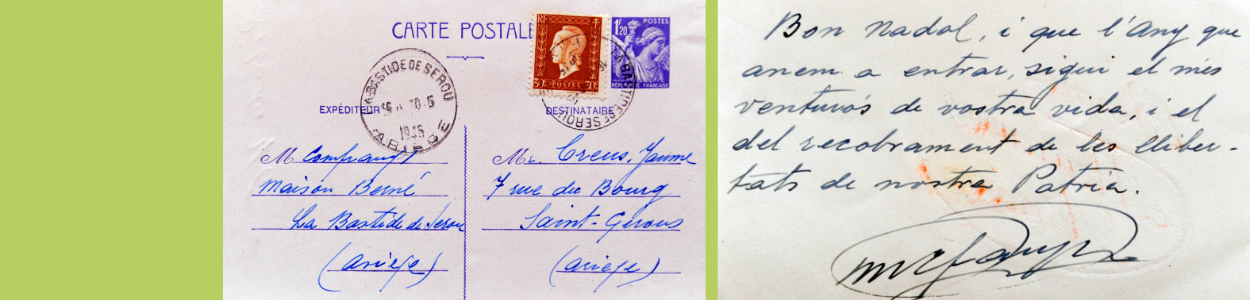 CARTE POSTALE
RF
30c POSTES 30c
POSTES
1F20
RÉPUBLIQUE FRANÇAISE
LABASTIDE DE SEROU
1945
ARIEGE
LA BASTIDE DE SEROU
EXPÉDITEUR
M. Companys
Maison Berné
La Bastide de Serou
(Ariege)
DESTINATAIRE
Mr. Creus, Jaume
7 rue du Bourg
Saint-Girons
(Ariege)
Bon Nadal, i que l'Any que
anem a entrar, sigui el més
venturós de vostra vida, i el
del recobrament de les lliber-
tats de nostra Patria.